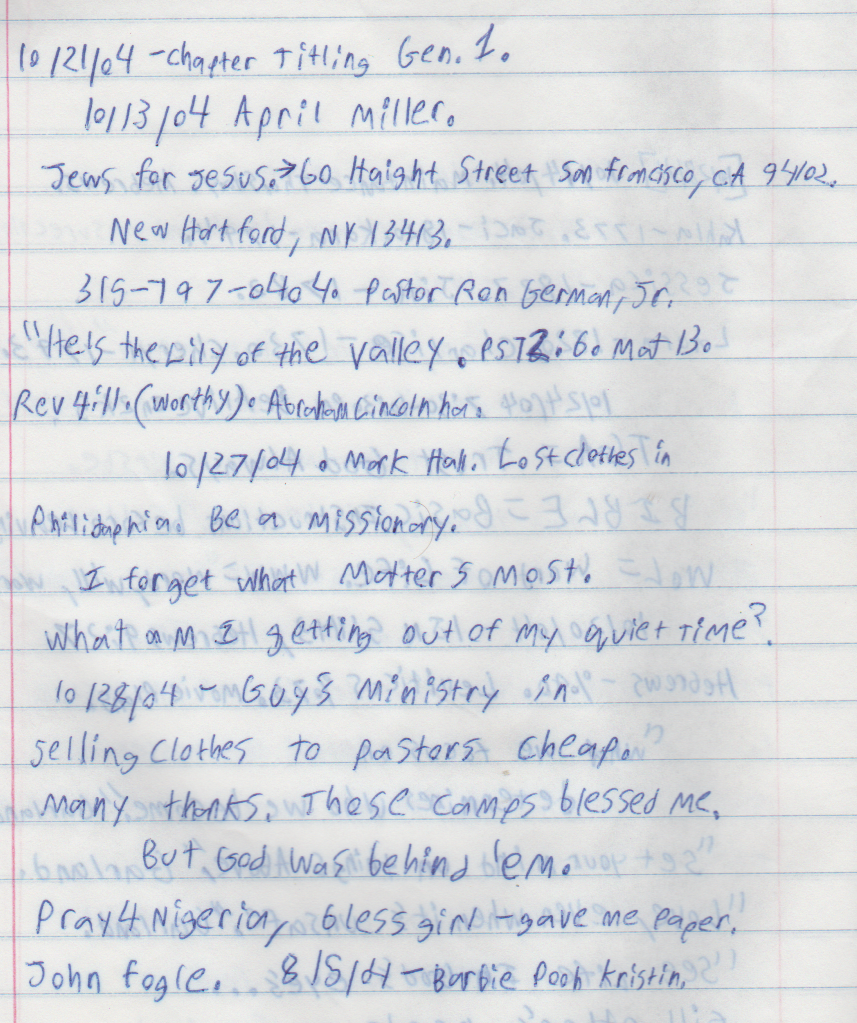 10/21/04 - chapter Titling Gen. 1.
10/13/04 April Miller.
Jews for Jesus. → 60 Haight Street San francisco, CA 94102.
New Hartford, NY 13413.
315-797-0404. Pastor Ron German, Jr.
"He is the Lily of the valley. PS 72:6. Mat 13.
Rev 4:11. (worthy). Abraham Lincoln ha.
10/27/04. Mark Hall. Lost clothes in
Philidaphia. Be a missionary.
I forget what Matters most.
What am I getting out of my quiet Time?
10/28/04 - Guy's Ministry in
selling clothes to pastors cheap.
Many thanks. These camps blessed me.
But God was behind 'em.
Pray 4 Nigeria, bless girl - gave me paper.
John fogle. 8/5/04 - Barbie Pooh Kristin.